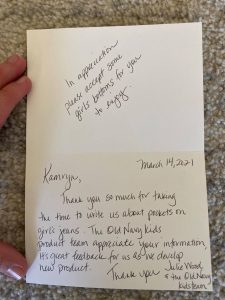 In appreciation
please accept some
girls bottoms for you
to enjoy.
March 14, 2021
Kamryn,
Thank you so much for taking
the time to write us about pockets on
girls jeans. The Old Navy Kids
product team appreciate your information,
It's great feedback for us as we develop
new product.
Thank you
Julie Wood,
of the Old Navy
kids team